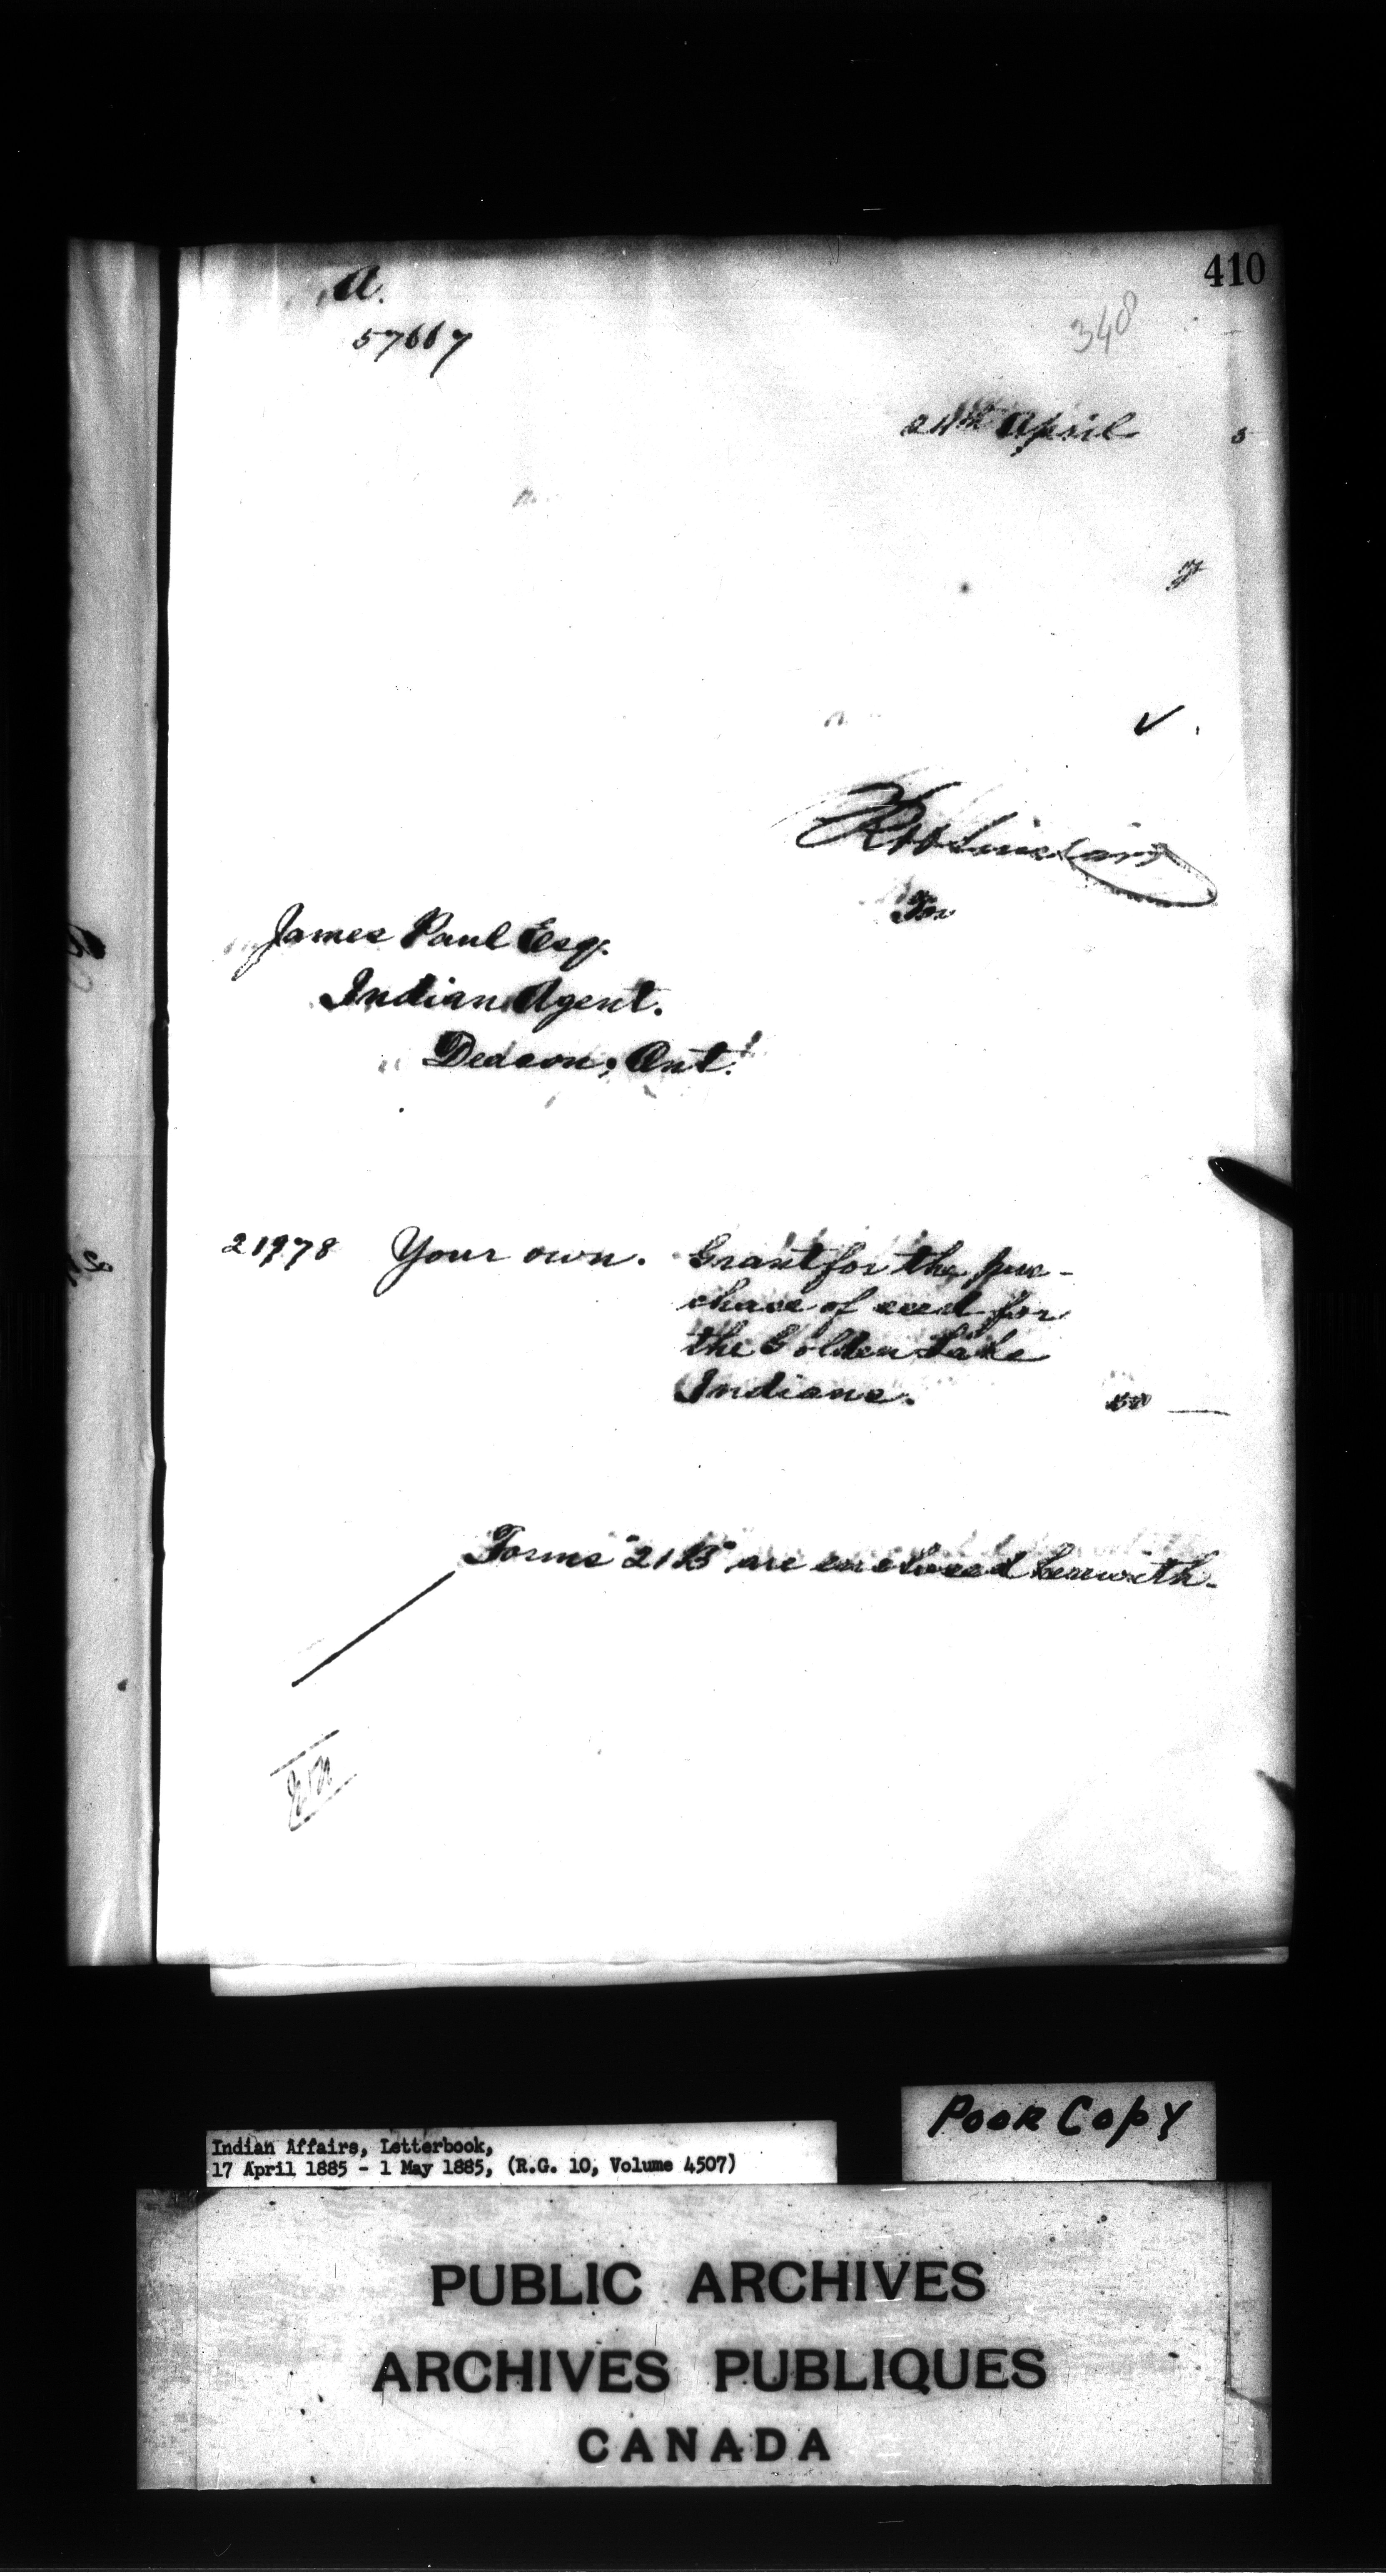 410
A.
57667
348
24th April 5
James Paul Esq.
Indian Agent.
Deacon, Ont.
For
21978 Your own. Grant for the pur-
chase of seed for
the Golden Lake
Indians. 50 —
Forms "21 B" are enclosed herewith.
Poor Copy
Indian Affairs, Letterbook,
17 April 1885 - 1 May 1885, (R.G. 10, Volume 4507)
PUBLIC ARCHIVES
ARCHIVES PUBLIQUES
CANADA